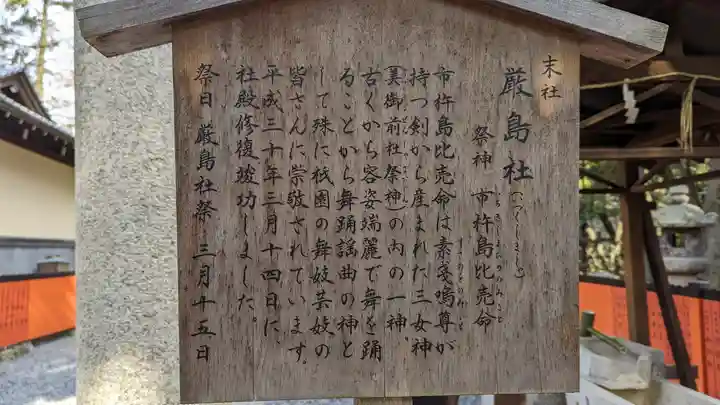 末社
厳島社(いつくしましゃ)
祭神 市杵島比売命
いちきしまひめのみこと
市杵島比売命は素戔嗚尊が
すさのをのみこと
持つ剣から産まれた三女神
(美御前社祭神)の内の一神。
古くから容姿端麗で舞を踊
ることから舞踊謡曲の神と
して殊に祇園の舞妓芸妓の
皆さんに崇敬されています。
平成三十年三月十四日に、
社殿修復竣功しました。
祭日 厳島社祭 三月十五日